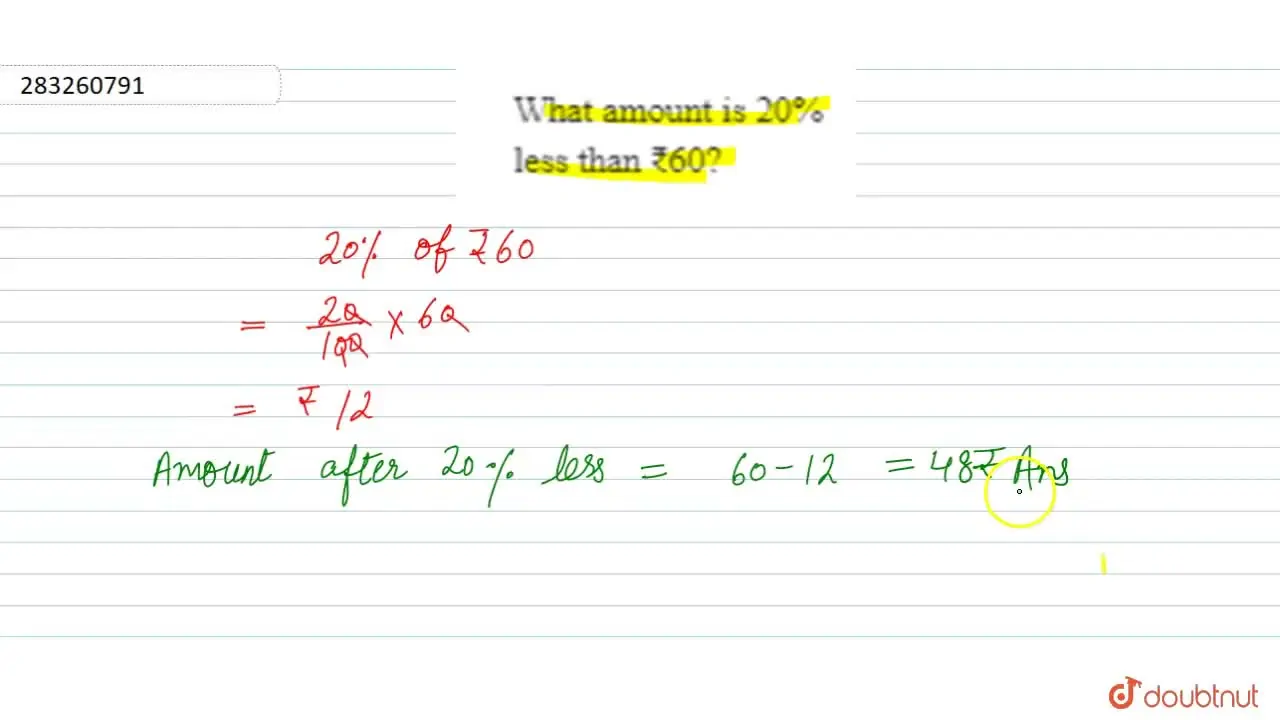 283260791
What amount is 20%
less than ₹60?
20% of ₹60
= 20/100 × 60
= ₹ 12
Amount after 20% less = 60-12 = 48₹ Ans
doubtnut